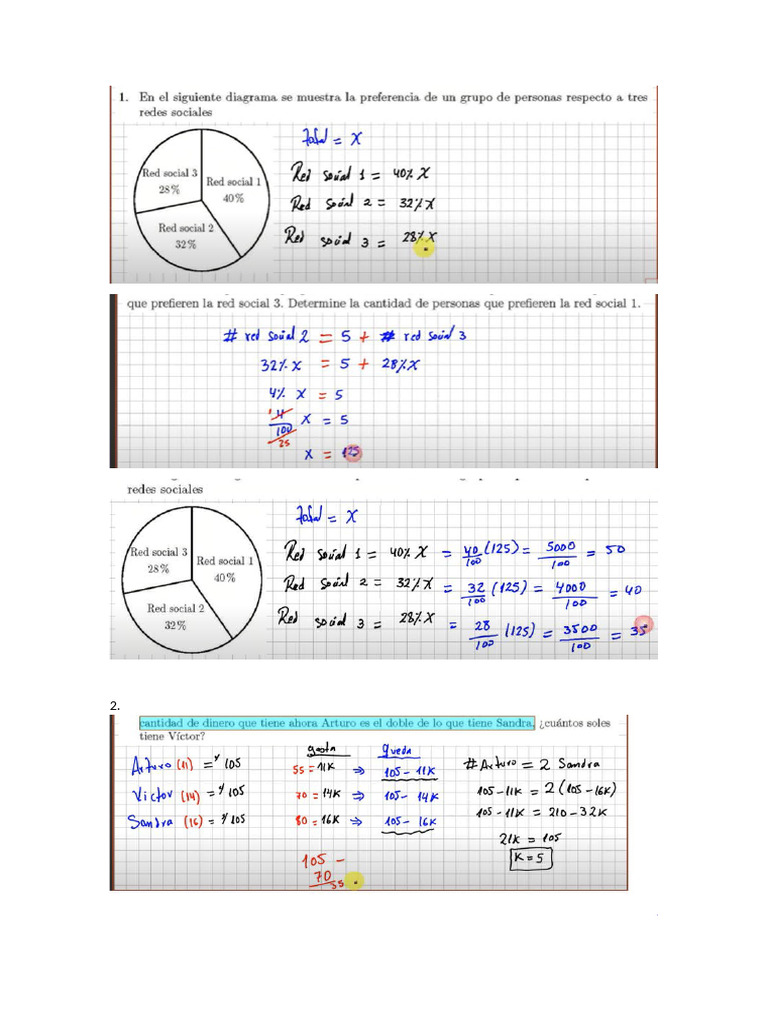 1. En el siguiente diagrama se muestra la preferencia de un grupo de personas respecto a tres
redes sociales
Total = X
Red social 3
28%
Red social 1
40%
Red social 2
32%
Red social 1 = 40% X
Red social 2 = 32% X
Red social 3 = 28% X
que prefieren la red social 3. Determine la cantidad de personas que prefieren la red social 1.
# red social 2 = 5 + # red social 3
32% X = 5 + 28% X
4% X = 5
4/100 X = 5
1 25
X = 125
redes sociales
Total = X
Red social 3
28%
Red social 1
40%
Red social 2
32%
Red social 1 = 40% X = 40/100 (125) = 5000/100 = 50
Red social 2 = 32% X = 32/100 (125) = 4000/100 = 40
Red social 3 = 28% X = 28/100 (125) = 3500/100 = 35
2.
cantidad de dinero que tiene ahora Arturo es el doble de lo que tiene Sandra, ¿cuántos soles
tiene Víctor?
gasta queda
Arturo (11) = s/ 105 55 = 11K ⇒ 105 - 11K
Victor (14) = s/ 105 70 = 14K ⇒ 105 - 14K
Sandra (16) = s/ 105 80 = 16K ⇒ 105 - 16K
# Arturo = 2 Sandra
105 - 11K = 2 (105 - 16K)
105 - 11K = 210 - 32K
21K = 105
K = 5
105 -
70
35